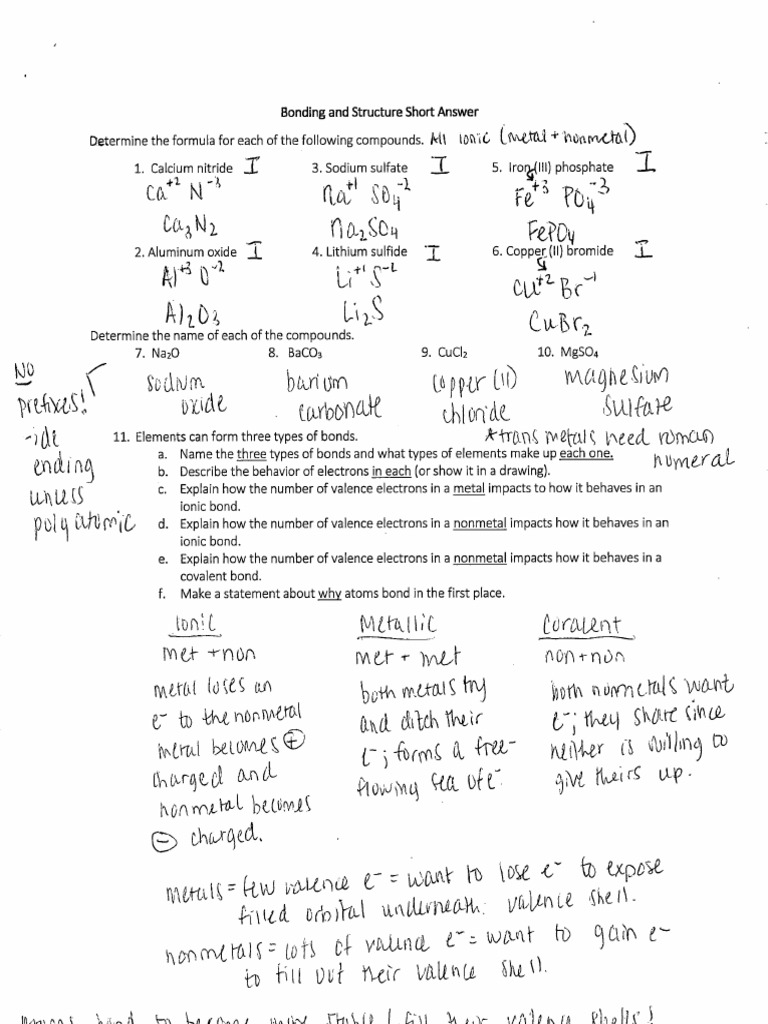 Bonding and Structure Short Answer
Determine the formula for each of the following compounds. All ionic (metal + nonmetal)
1. Calcium nitride I 3. Sodium sulfate I 5. Iron (III) phosphate I
Ca+2 N-3 Na+1 SO4-2 Fe+3 PO4-3
Ca3N2 Na2SO4 FePO4
2. Aluminum oxide I 4. Lithium sulfide I 6. Copper (II) bromide I
Al+3 O-2 Li+1 S-2 Cu+2 Br-1
Al2O3 Li2S CuBr2
Determine the name of each of the compounds.
7. Na2O 8. BaCO3 9. CuCl2 10. MgSO4
sodium barium copper (II) magnesium
oxide carbonate chloride sulfate
NO
prefixes!
-ide
ending
unless
polyatomic
*trans metals need roman
numeral
11. Elements can form three types of bonds.
a. Name the three types of bonds and what types of elements make up each one.
b. Describe the behavior of electrons in each (or show it in a drawing).
c. Explain how the number of valence electrons in a metal impacts to how it behaves in an
ionic bond.
d. Explain how the number of valence electrons in a nonmetal impacts how it behaves in an
ionic bond.
e. Explain how the number of valence electrons in a nonmetal impacts how it behaves in a
covalent bond.
f. Make a statement about why atoms bond in the first place.
Ionic
met + non
metal loses an
e- to the nonmetal
metal becomes +
charged and
nonmetal becomes
- charged.
Metallic
met + met
both metals try
and ditch their
e-; forms a free-
flowing sea of e-
Covalent
non + non
both nonmetals want
e-; they share since
neither is willing to
give theirs up.
metals = few valence e- = want to lose e- to expose
filled orbital underneath valence shell.
nonmetals = lots of valence e- = want to gain e-
to fill out their valence shell.
bond to become more stable / fill their valence shells!